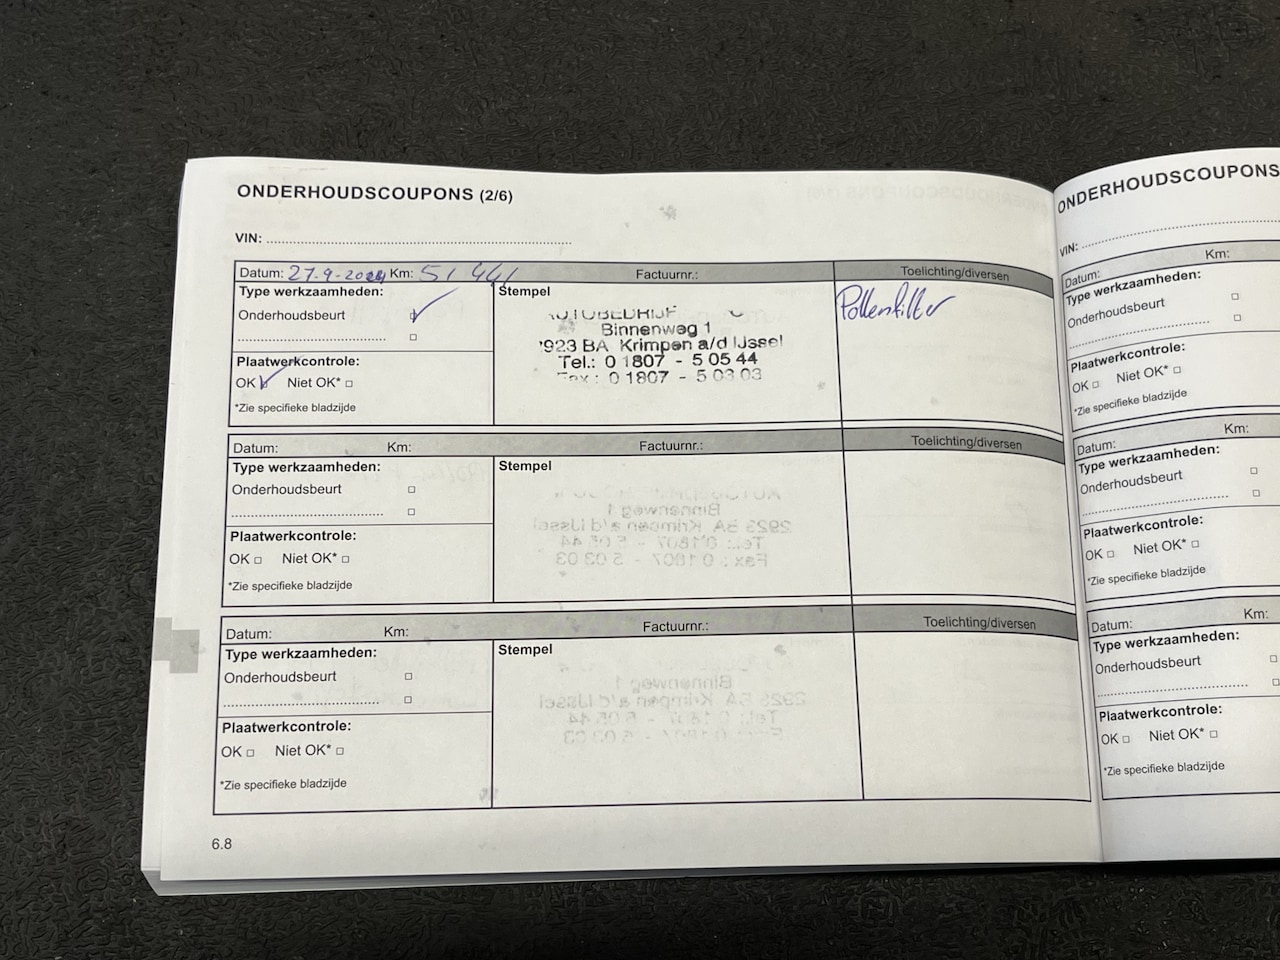 ONDERHOUDSCOUPONS (2/6)
VIN:
Datum: 27-9-2024 Km: 51 441 Factuurnr.: Toelichting/diversen
Type werkzaamheden:
Onderhoudsbeurt
Plaatwerkcontrole:
OK Niet OK*
*Zie specifieke bladzijde
Stempel
AUTOBEDRIJF
Binnenweg 1
2923 BA Krimpen a/d IJssel
Tel.: 01807 - 5 05 44
Fax : 01807 - 5 03 03
Pollenfilter
Datum: Km: Factuurnr.: Toelichting/diversen
Type werkzaamheden:
Onderhoudsbeurt
Plaatwerkcontrole:
OK Niet OK*
*Zie specifieke bladzijde
Stempel
Datum: Km: Factuurnr.: Toelichting/diversen
Type werkzaamheden:
Onderhoudsbeurt
Plaatwerkcontrole:
OK Niet OK*
*Zie specifieke bladzijde
Stempel
6.8
ONDERHOUDSCOUPONS
VIN:
Datum: Km:
Type werkzaamheden:
Onderhoudsbeurt
Plaatwerkcontrole:
OK Niet OK*
*Zie specifieke bladzijde
Datum: Km:
Type werkzaamheden:
Onderhoudsbeurt
Plaatwerkcontrole:
OK Niet OK*
*Zie specifieke bladzijde
Datum: Km:
Type werkzaamheden:
Onderhoudsbeurt
Plaatwerkcontrole:
OK Niet OK*
*Zie specifieke bladzijde